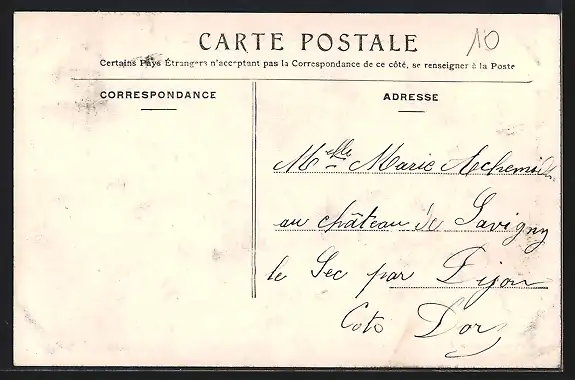 10
CARTE POSTALE
Certains Pays Étrangers n'acceptent pas la Correspondance de ce côté, se renseigner à la Poste
CORRESPONDANCE
ADRESSE
Melle Marie
au château de Savigny
le Sec par Dijon
Coto Dor